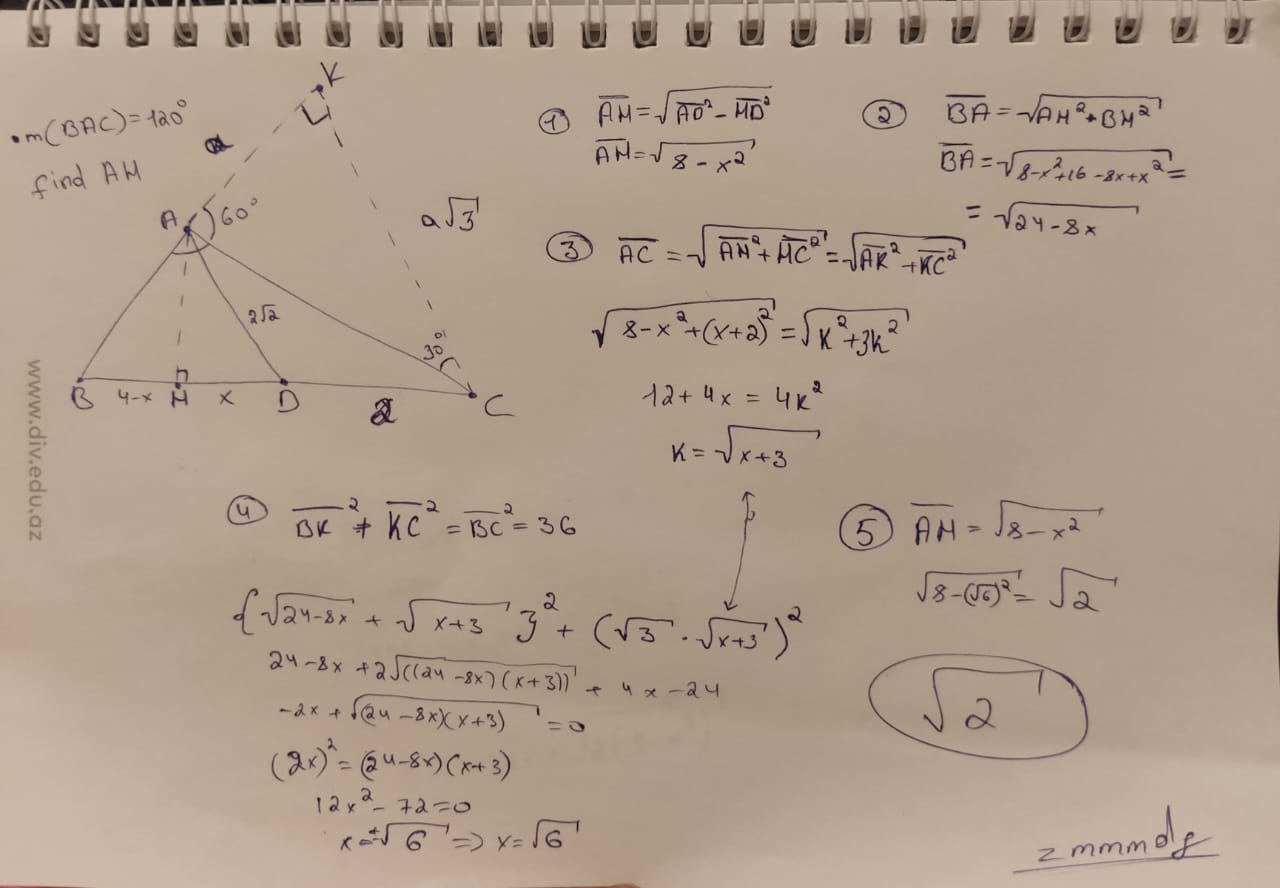 • m(BAC) = 120°
find AH
K
a
A
60°
a√3
2√2
30°
B
4-x
H
x
D
2
C
www.div.edu.az
① AH = √(AD² - HD²)
AH = √(8 - x²)
② BA = √(AH² + BH²)
BA = √(8-x²+16-8x+x²) =
= √(24-8x)
③ AC = √(AH² + HC²) = √(AK² + KC²)
√(8-x²+(x+2)²) = √(K²+3K²)
12 + 4x = 4K²
K = √(x+3)
④ BK² + KC² = BC² = 36
{√(24-8x) + √(x+3)}² + (√3 · √(x+3))²
24-8x + 2√((24-8x)(x+3)) + 4x - 24
-2x + √((24-8x)(x+3)) = 0
(2x)² = (24-8x)(x+3)
12x² - 72 = 0
x = ±√6 => x = √6
⑤ AH = √(8-x²)
√(8-(√6)²) = √2
√2
zmmmdg